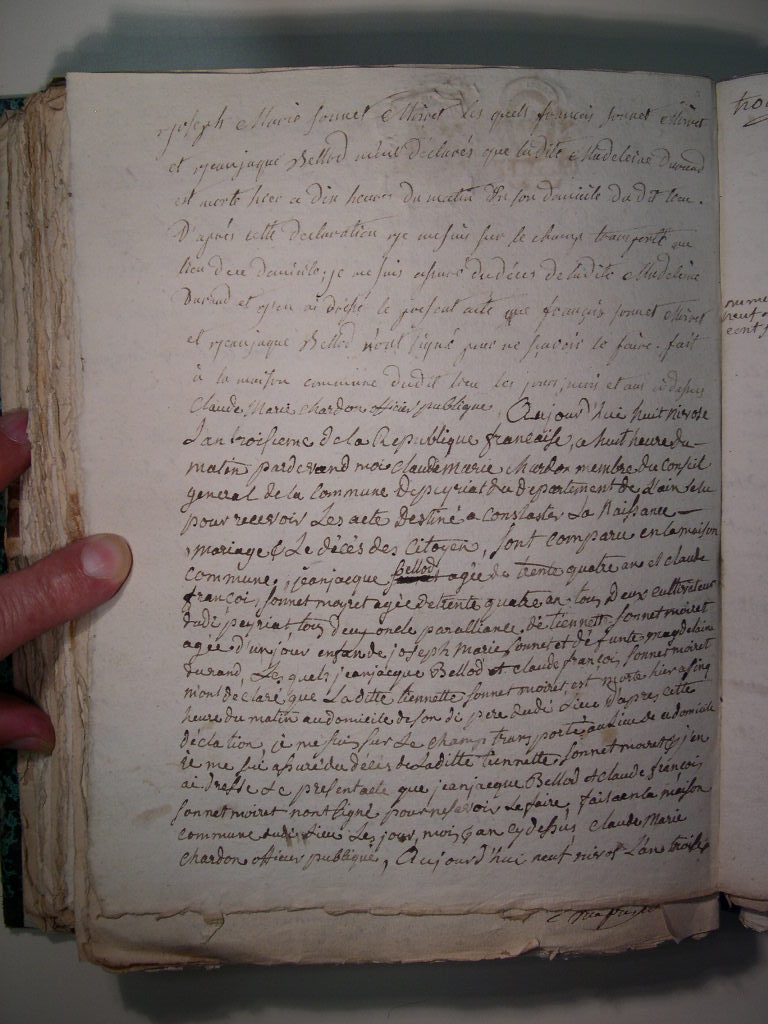 joseph Marie sonnet Moiret les quels francois sonnet Moiret
et jeanjaque Bellod mont déclarés que ladite Madeleine Durand
est morte hier a dix heures du matin En son domicile du dit lieu.
D'après cette declaration je me suis sur le champ transporté au
lieu de ce domicile, je me suis assuré du déces de ladite Madeleine
Durand et j'en ai drésé le present acte que françois sonnet Moiret
et jeanjaque Bellod n'ont signé pour ne sçavoir le faire. fait
à la maison commune dudit lieu les jour, mois et an ci dessus
Claude Marie chardon officier publique, Aujourd'hui huit nivose
L'an troisieme de la Republique française, a huit heure du
matin pardevand moi claude marie chardon membre du conseil
general de la commune de peyriat du departement de L'ain
pour recevoir Les acte Destiné a constaster La Naissance
mariage & Le décés des Citoyen, sont comparu en la maison
commune, jeanjacque Bellod agée de trente quatre ans et claude
françoi sonnet moyret agée de trente quatre an tous Deux cultivateur
dudi peyriat tous deux oncle par alliance de tiennette sonnet moiret
agée d'un jour enfan de joseph marie sonnet et défunte magdelaine
durand, Les quels jeanjacque Bellod et claude françoi sonnet moiret
mont declaré que Laditte tiennette sonnet moiret est morte hier a sinq
heure du matin au domicile de son di pere dudi Lieu d'apres cette
déclation, je me sui sur Le champ transporté au Lieu de ce domicile
je me sui assuré du déces de Laditte tiennette sonnet moiret & j'en
ai dressé Le present acte que jeanjacque Bellod et claude frénçois
sonnet moiret nont signé pour ne savoir Le faire, fais a en la maison
commune dudi Lieu Les jour, mois, & an cy dessus claude Marie
chardon officier publique, Aujourd'hui neuf nivos L'an trois